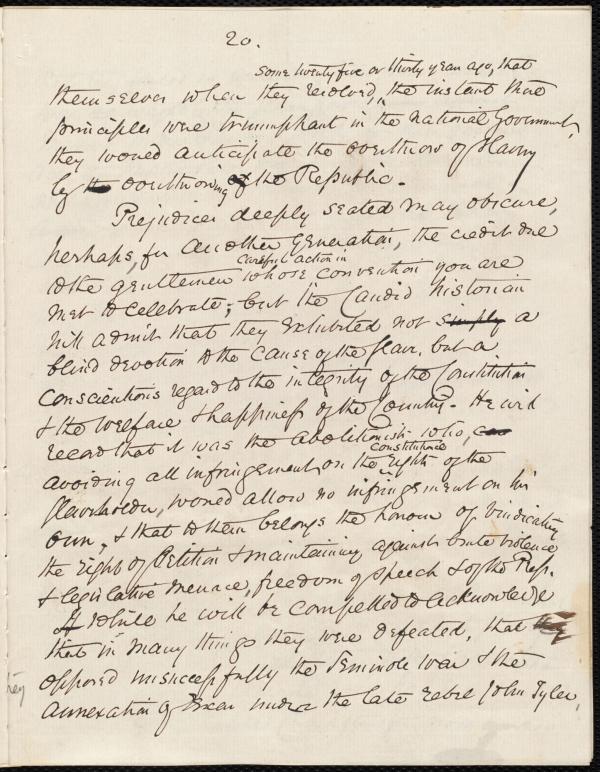 20.
some twenty five or thirty year ago, that
themselves when they resolved, the instant their
principles were triumphant in the National Government,
they would anticipate the overthrow of Slavery
by the overthrowing of the Republic.
Prejudices deeply seated may obscure,
perhaps, for another Generation, the credit due
careful action in
to the gentlemen whose convention you are
met to celebrate; but the Candid historian
will admit that they exhibited not simply a
blind devotion to the cause of the slave, but a
conscientious regard to the integrity of the Constitution
& the welfare & happiness of the Country. He will
record that it was the abolitionists who,
constitutional
avoiding all infringement on the rights of the
slaveholder, would allow no infringement on his
own, & that to them belongs the honour of vindicating
the right of Petition & maintaining against brute violence
& legislative menace, freedom of speech & of the Press.
If While he will be compelled to acknowledge
that in many things they were defeated, that they
opposed unsuccessfully the Seminole War & the
annexation of Texas under the late rebel John Tyler,